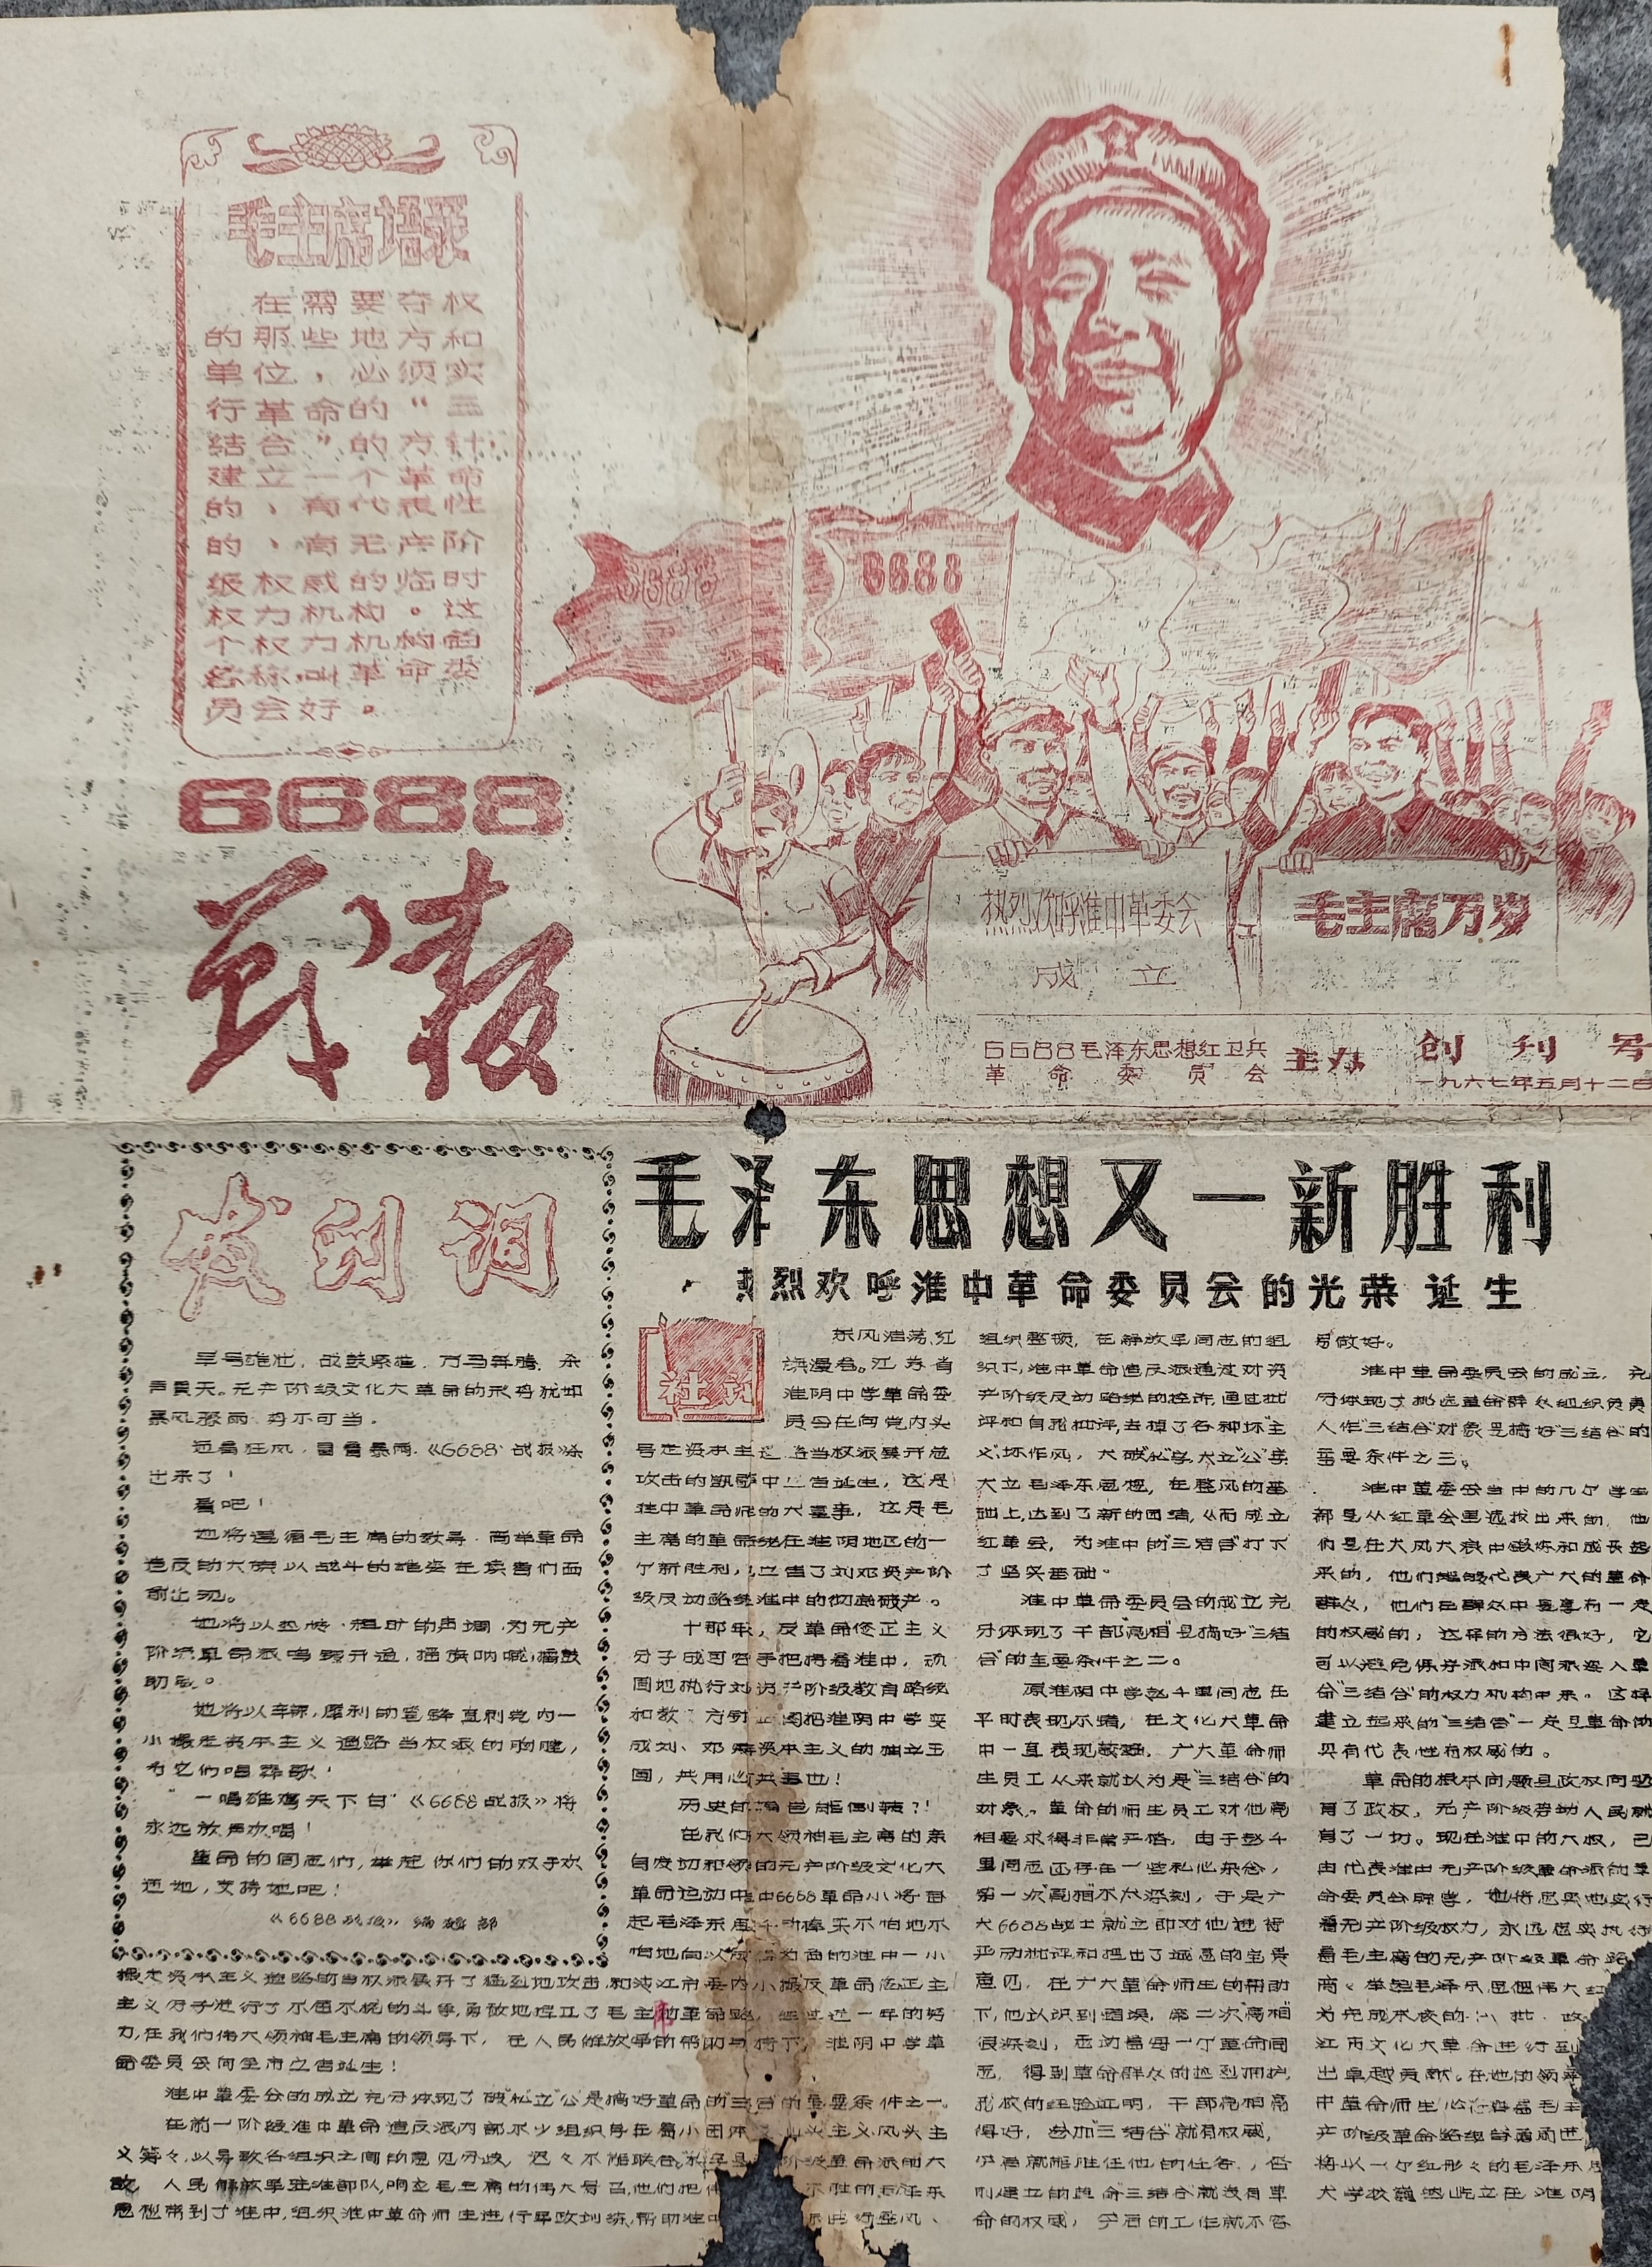 毛主席语录
在需要夺权
的那些地方和
单位，必须实
行革命的“三
结合”的方针
建立一个革命
的，有代表性
的，有无产阶
级权威的临时
权力机构。这
个权力机构的
名称，叫革命委
员会好。
6688
战报
6688
6688
热烈欢呼淮中革委会
成立
毛主席万岁
6688毛泽东思想红卫兵
革命委员会
主办
创刊号
一九六七年五月十二日
发刊词
军号雄壮，战鼓紧催，万马奔腾，杀
声震天。无产阶级文化大革命的形势犹如
暴风骤雨，势不可当。
迎着狂风，冒着暴雨，《6688战报》杀
出来了！
看吧！
她将遵循毛主席的教导，高举革命
造反的大旗以战斗的雄姿在读者们面
前出现。
她将以热情、粗旷的声调，为无产
阶级革命派鸣锣开道，摇旗呐喊，擂鼓
助威。
她将以辛辣，犀利的笔锋直刺党内一
小撮走资本主义道路当权派的胸膛，
为它们唱葬歌！
“一唱雄鸡天下白”《6688战报》将
永远放声欢唱！
革命的同志们，举起你们的双手欢
迎她，支持她吧！
《6688战报》编辑部
毛泽东思想又一新胜利
热烈欢呼淮中革命委员会的光荣诞生
社论
东风浩荡，红
旗漫卷。江苏省
淮阴中学革命委
员会在向党内头
号走资本主义当权派展开总
攻击的凯歌中宣告诞生，这是
淮中革命派的大喜事，这是毛
主席的革命路线在淮阴地区的一
个新胜利，宣告了刘邓资产阶
级反动路线淮中的彻底破产。
十那年，反革命修正主义
分子成可容手把持着淮中，顽
固地执行刘资产阶级教育路线
和教方针企图把淮阴中学变
成刘、邓资本主义的独立王
国，其用心其毒也！
历史的能倒转？！
在我们大领袖毛主席的亲
自发动和领的无产阶级文化大
革命运动中中6688革命小将奋
起毛泽东千钧棒天不怕地不
怕地向以成为首的淮中一小
撮走资本主义道路的当权派展开了猛烈地攻击，和清江市委内小撮反革命修正主
主义分子进行了不屈不挠的斗争，勇敢地捍卫了毛主的革命路，经过近一年的努
力，在我们伟大领袖毛主席的领导下，在人民解放军的帮助支持下，淮阴中学革
命委员会向全市之宣诞生！
淮中革委会的成立充分体现了破“私”立“公”是搞好革命的三合的重要条件之一。
在前一阶段淮中革命造反派内部不少组织存在着小团体义山头主义风头主
义等々，以导致各组织之间的意见分歧，迟々不能联合阶级革命派的大
敌。人民解放军驻淮部队响应毛主席的伟大号召，他们把不胜的毛泽东
思想带到了淮中，组织淮中革命师生进行军政训练，帮助淮中进行整风、
组织整顿，在解放军同志的组
织下，淮中革命造反派通过对资
产阶级反动路线的控诉，通过批
评和自我批评，去掉了各种坏“主
义”坏作风，大破“私”字，大立“公”字
大立毛泽东思想，在整风的基
础上，达到了新的团结，从而成立
红革会，为淮中的“三结合”打下
了坚实基础。
淮中革命委员会的成立充
分体现了干部“亮相”是搞好“三结
合”的主要条件之二。
原淮阴中学赵千里同志在
平时表现不错，在文化大革命
中一直表现较好，广大革命师
生员工从来就认为是“三结合”的
对象。革命的师生员工对他亮
相要求得非常严格，由于赵千
里同志还存在一些私心杂念，
第一次“亮相”不太深刻，于是广
大6688战士就立即对他进行
严励批评和提出了诚恳的主贵
意见，在广大革命师生的帮助
下，他认识到错误，第二次“亮相”
很深刻，感动着每一个革命同
志，得到革命群众的热烈拥护，
我校的经验证明，干部亮相亮
得好，参加“三结合”就有权威，
今后就能胜任他的任务，否
则建立的革命三结合就没有革
命的权威，今后的工作就不容
易做好。
淮中革命委员会的成立，充
分体现了挑选革命群众组织负责
人作“三结合”对象是搞好“三结合”的
重要条件之三。
淮中革委会当中的几个学生
都是从红革会里选拔出来的，他
们是在大风大浪中锻炼和成长起
来的，他们能够代表广大的革命
群众，他们在群众中是享有一定
的权威的，这样的方法很好，它
可以避免保守派和中间派进入革
命“三结合”的权力机构中来。这样
建立起来的“三结合”一定是革命的
具有代表性有权威的。
革命的根本问题是政权问题
有了政权，无产阶级劳动人民就
有了一切。现在淮中的大权，已
由代表淮中无产阶级革命派的革
命委员会掌，她将忠实地实行
着无产阶级权力，永远忠实执行
着毛主席的无产阶级革命路
高々举起毛泽东思想伟大红
为完成本校的批政
江市文化大革命进行到
出卓越贡献。在她的领导
中革命师生必沿着毛主
产阶级革命路线奋勇前进
将以一个红形々的毛泽东思
大学校巍然屹立在淮阴